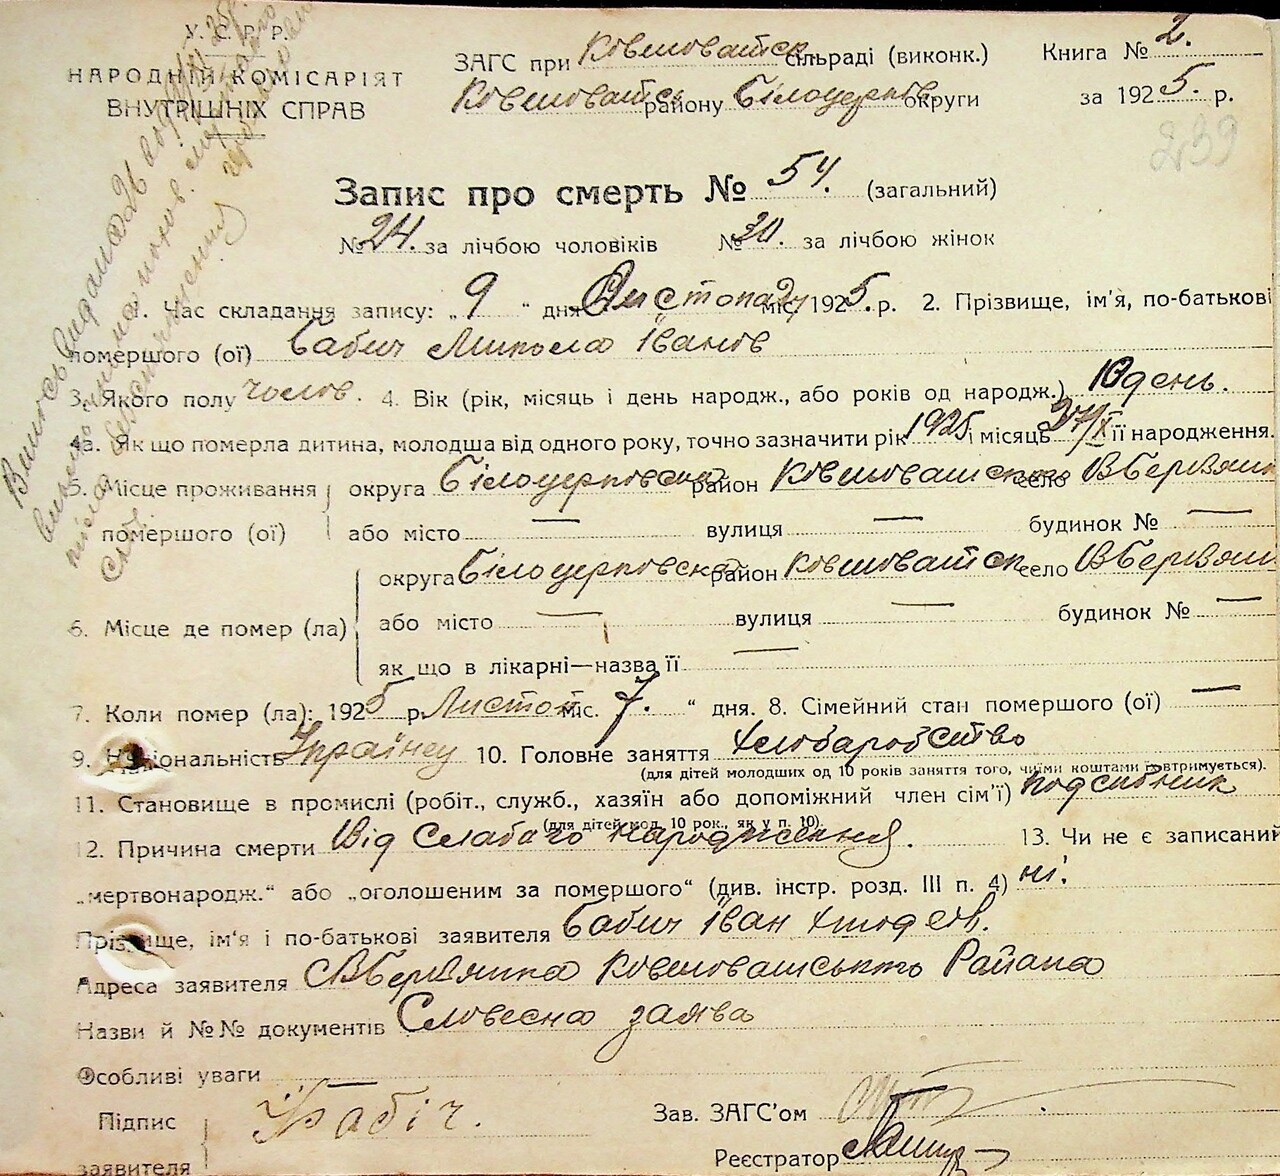 У. С. Р. Р.
НАРОДНІЙ КОМІСАРІЯТ
ВНУТРІШНІХ СПРАВ
ЗАГС при Ковшоватск сільраді (виконк.) Книга № 2.
Ковшоватск району Білоцерків округи за 1925. р.
239
Запис про смерть № 54. (загальний)
№ 24. за лічбою чоловіків № 30. за лічбою жінок
1. Час складання запису: „ 9 “ дня Листопад міс. 1925. р. 2. Прізвище, ім’я, по-батькові
помершого (ої) Бабич Микола Іванов
3. Якого полу чолов. 4. Вік (рік, місяць і день народж., або років од народж.) 10 день.
4а. Як що померла дитина, молодша від одного року, точно зазначити рік 1925 і місяць її народження.
5. Місце проживання округа Білоцерковська район Ковшоватск село
помершого (ої) або місто — вулиця — будинок № —
округа Білоцерковска район Ковшоватск село
6. Місце де помер (ла) або місто — вулиця — будинок № —
як що в лікарні—назва її —
7. Коли помер (ла): 1925 р. Листоп міс. 7. “ дня. 8. Сімейний стан помершого (ої) —
9. Національність Українец 10. Головне заняття хлобаробство
(для дітей молодших од 10 років заняття того, чиїми коштами їх втримується).
11. Становище в промислі (робіт., служб., хазяїн або допоміжний член сім’ї) подсобник
(для дітей мол. 10 рок., як у п. 10).
12. Причина смерти Від Слабаго народження. 13. Чи не є записаний
„мертвонародж.“ або „оголошеним за помершого“ (див. інстр. розд. III п. 4) ні.
Прізвище, ім‘я і по-батькові заявителя Бабич Іван
Адреса заявителя Ковшовашського Района
Назви й №№ документів Словесна заява
Особливі уваги —
Підпис
заявителя Бабіч.
Зав. ЗАГС’ом
Реєстратор